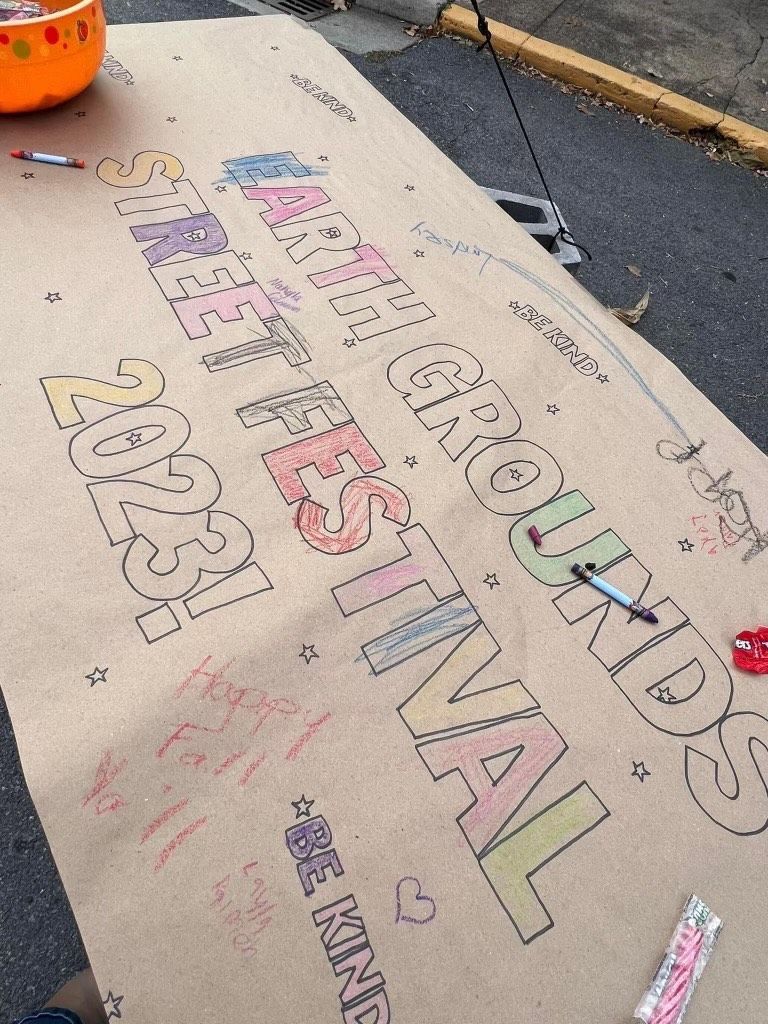 EARTH GROUNDS
STREET FESTIVAL
2023!
BE KIND
BE KIND
BE KIND
Lindsay
Happy
Fall
Layla